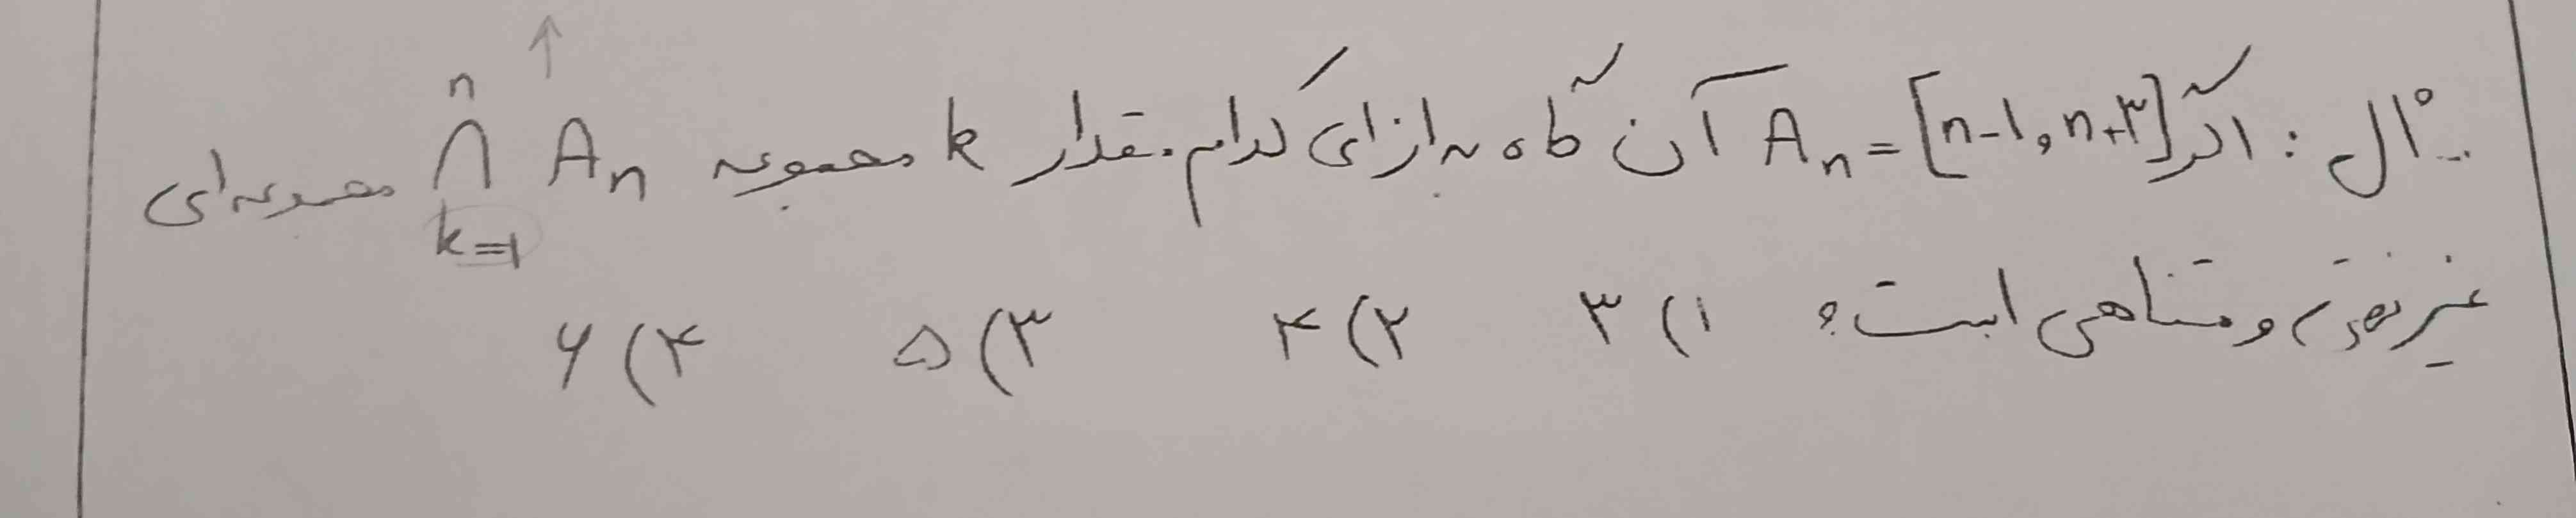 مثال: اگر A_n = [n-1, n+3] آن گاه به ازای کدام مقدار k مجموعه n ∩ k=1 A_n مجموعه‌ای
غیر تهی و متناهی است؟ ۱) ۳ ۲) ۴ ۳) ۵ ۴) ۶